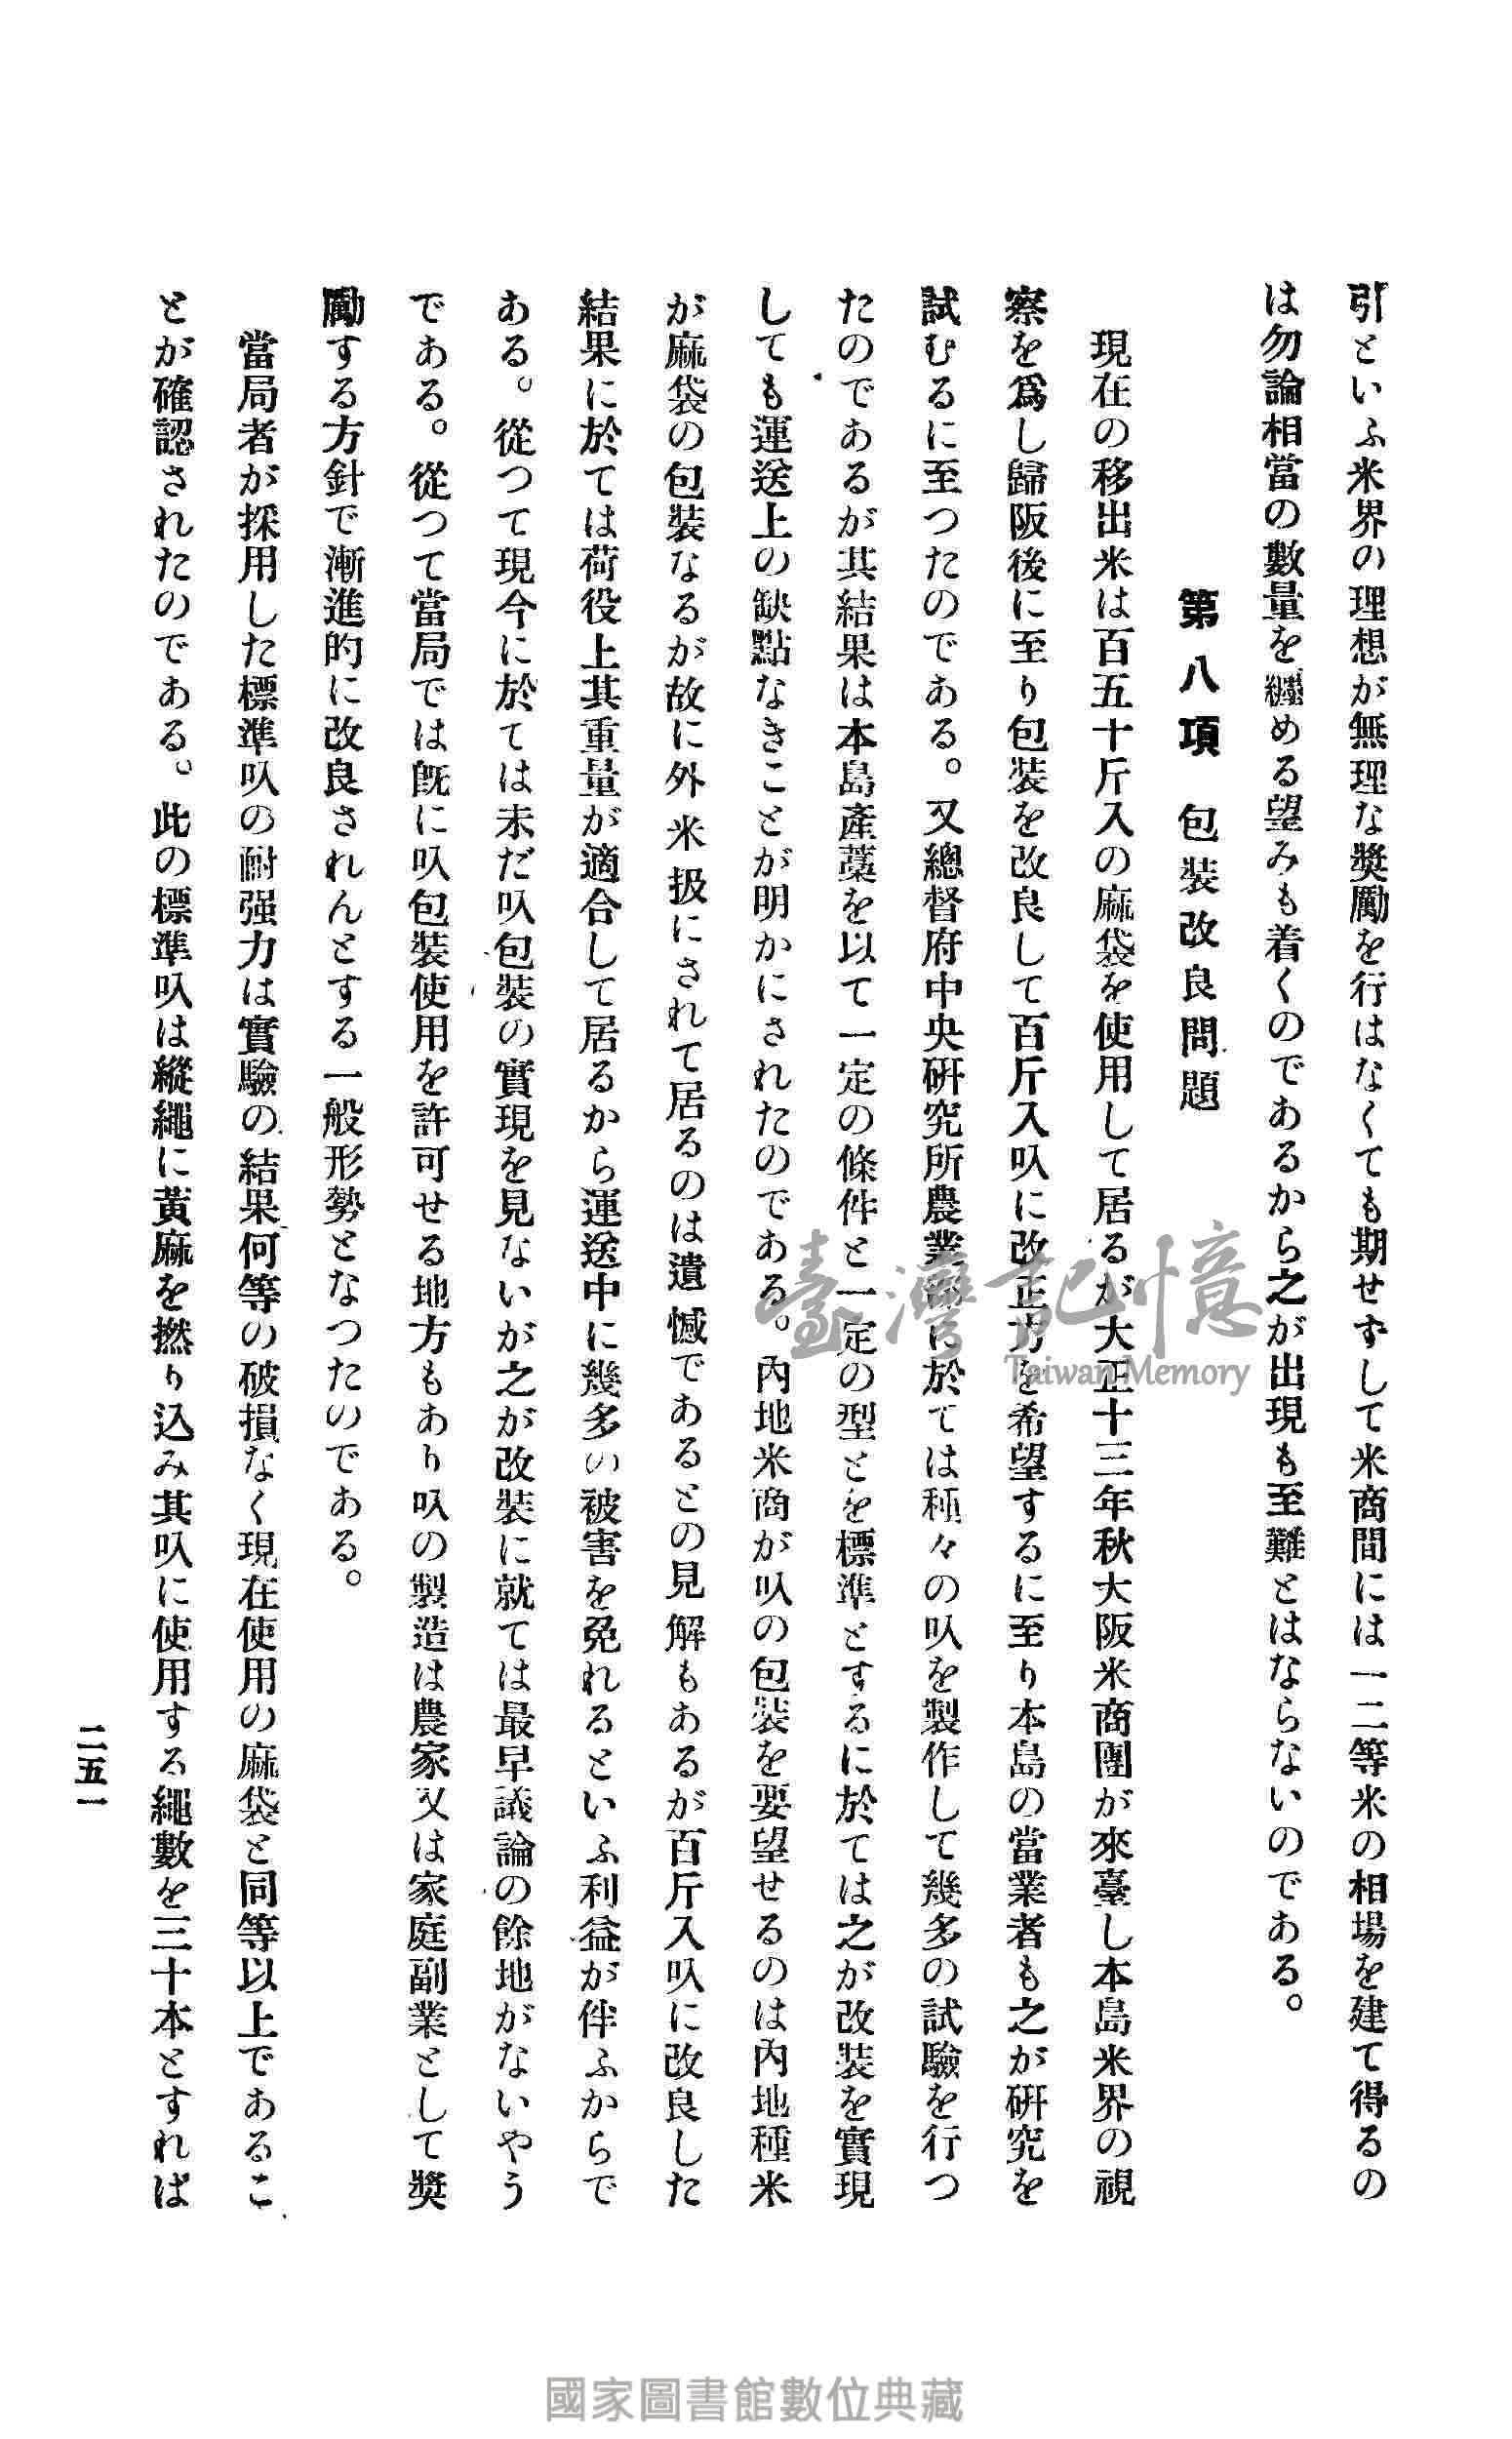 引といふ米界の理想が無理な奬勵を行はなくても期せずして米商間には一二等米の相場を建て得るの
は勿論相當の數量を纏める望みも着くのであるから之が出現も至難とはならないのである。
第八項 包裝改良問題
現在の移出米は百五十斤入の麻袋を使用して居るが大正十三年秋大阪米商團が來臺し本島米界の視
察を爲し歸阪後に至り包裝を改良して百斤入叺に改正方を希望するに至り本島の當業者も之が硏究を
試むるに至つたのである。又總督府中央硏究所農業部に於ては種々の叺を製作して幾多の試驗を行つ
たのであるが其結果は本島產藁を以て一定の條件と一定の型とを標準とするに於ては之が改裝を實現
しても運送上の缺點なきことが明かにされたのである。內地米商が叺の包裝を要望せるのは內地種米
が麻袋の包裝なるが故に外米扱にされて居るのは遺憾であるとの見解もあるが百斤入叺に改良した
結果に於ては荷役上其重量が適合して居るから運送中に幾多の被害を免れるといふ利益が伴ふからで
ある。從つて現今に於ては未だ叺包裝の實現を見ないが之が改裝に就ては最早議論の餘地がないやう
である。從つて當局では旣に叺包裝使用を許可せる地方もあり叺の製造は農家又は家庭副業として奬
勵する方針で漸進的に改良されんとする一般形勢となつたのである。
當局者が採用した標準叺の耐强力は實驗の結果何等の破損なく現在使用の麻袋と同等以上であるこ
とが確認されたのである。此の標準叺は縱繩に黃麻を撚り込み其叺に使用する繩數を三十本とすれば
二五一
臺灣記憶
Taiwan Memory
國家圖書館數位典藏